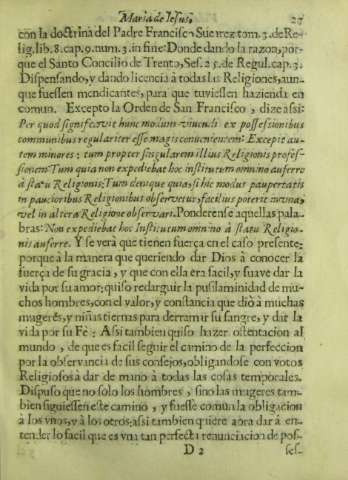 Maria de Iesus. 27
con la doctrina del Padre Francisco Suarez tom. 3. de Re-
lig. lib. 8. cap. 9. num. 3. in fine: Donde dando la razon, por-
que el Santo Concilio de Trento, Ses. 25. de Regul. cap. 3.
Dispensando, y dando licencia à todas las Religiones, aun-
que fuessen mendicantes, para que tuviessen hazienda en
comun. Excepto la Orden de San Francisco, dize assi:
Per quod significavit hunc modum vivendi ex possessionibus
communibus regulariter esse magis convenientem: Excepit au-
tem minores: tum propter singularem illius Religionis profes-
sionem: Tum quia non expediebat hoc institutum omnino auferro
à statu Religionis: Tum denique quia, si hic modus paupertatis
in paucioribus Religionibus observetur, facilius poterit
vel in altera Religione observari. Ponderense aquellas pala-
bras: Non expediebat hoc Institutum omnino à statu Religio-
nis auferre. Y se verà que tienen fuerça en el caso presente:
porque à la manera que queriendo dar Dios à conocer la
fuerça de su gracia, y que con ella era facil, y suave dar la
vida por su amor; quiso redarguir la pusilaminidad de mu-
chos hombres, con el valor, y constancia que diò à muchas
mugeres, y niñas tiernas para derramir su sangre, y dar la
vida por su Fè: Assi tambien quiso hazer ostentacion al
mundo, de que es facil seguir el camino de la perfeccion
por la observancia de sus consejos, obligandose con votos
Religiosos à dar de mano à todas las cosas temporales.
Dispuso que no solo los hombres, sino las mugeres tam-
bien siguiessen este camino, y fuesse comun la obligacion
à los vnos, y à los otros: assi tambien quiere aora dar à en-
tender lo facil que es vna tan perfecta renunciacion de pos-
D 2 ses-